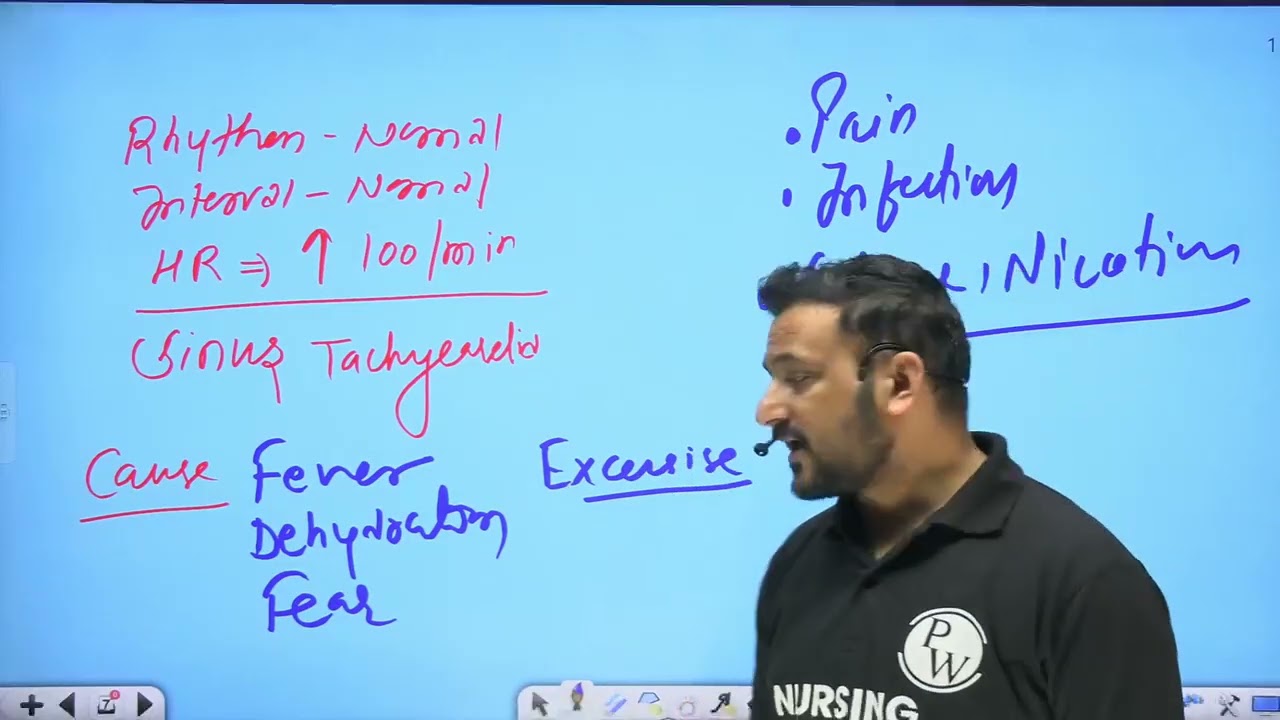 1
Rhythm - Normal
Interval - Normal
HR ⇒ ↑ 100/min
Sinus Tachycardia
Cause
Fever
Dehydration
Fear
Excersise
• Pain
• Infection
, Nicotine
PW
NURSING